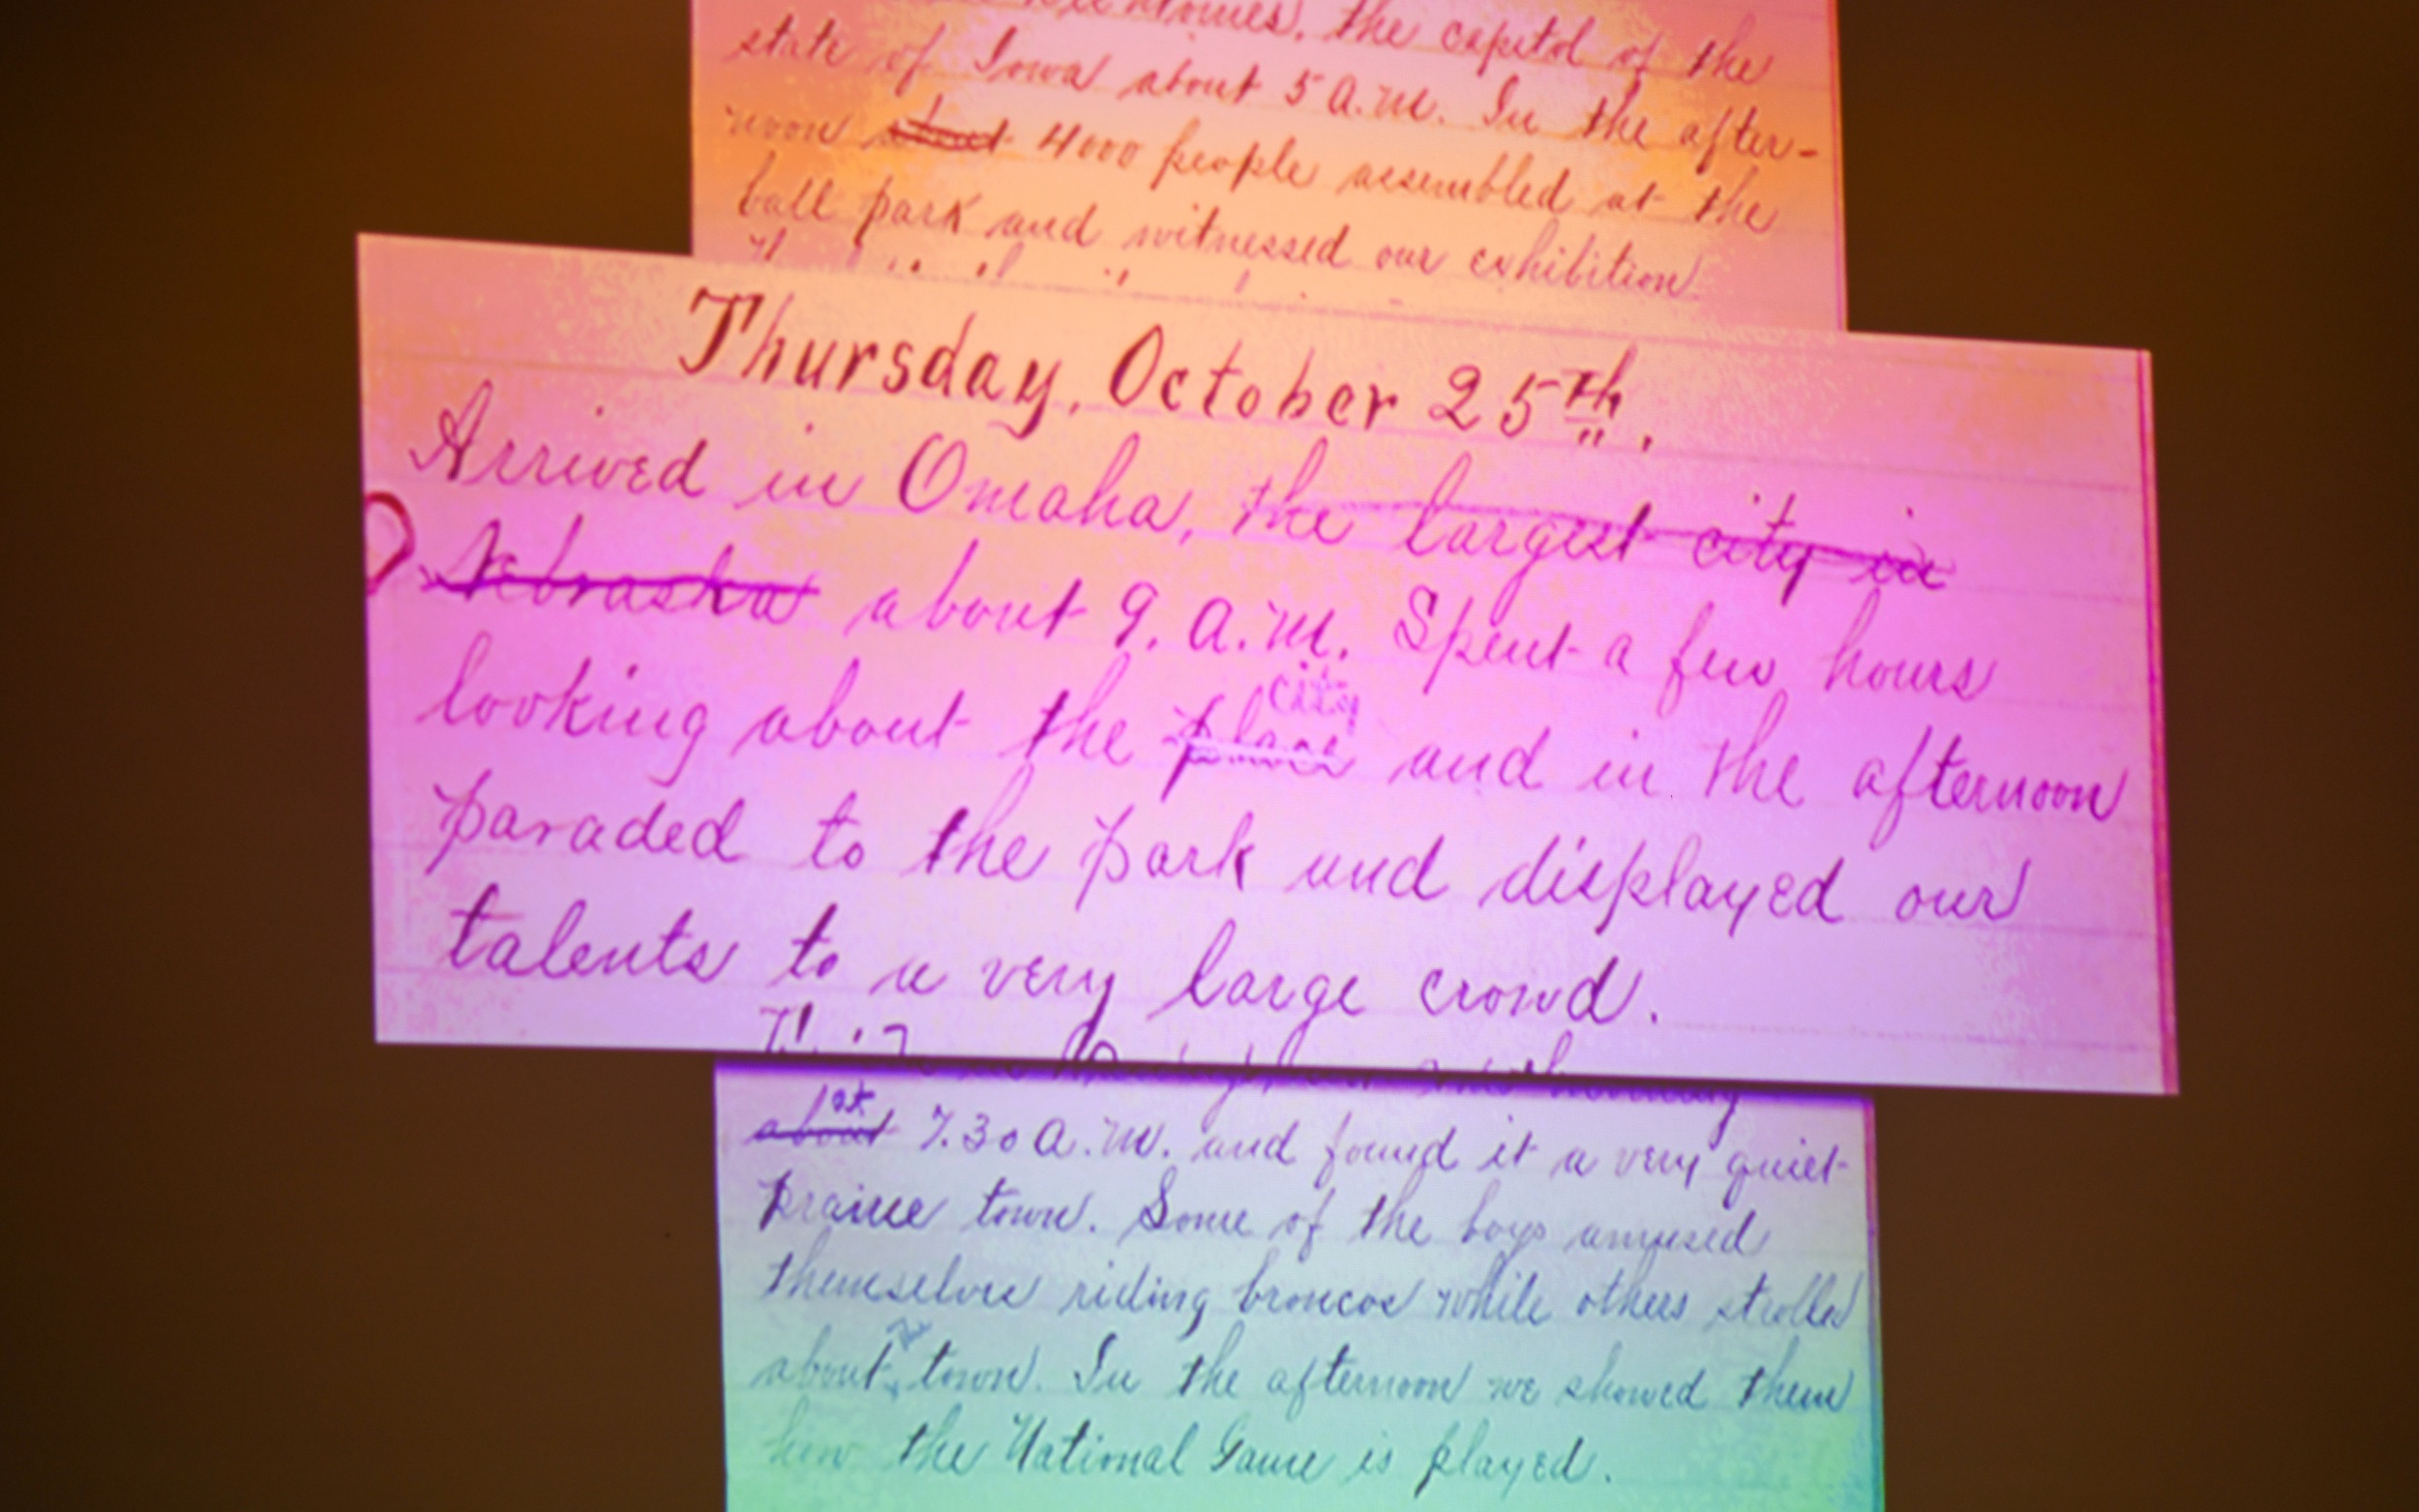 the capitol of the
state of Iowa about 5 A.M. In the after-
noon about 4000 people assembled at the
ball park and witnessed our exhibition.
Thursday, October 25th.
Arrived in Omaha, the largest city in
Nebraska about 9. A.M. Spent a few hours
city
looking about the place and in the afternoon
paraded to the park and displayed our
talents to a very large crowd.
at
about 7.30 A.M. and found it a very quiet
prairie town. Some of the boys amused
themselves riding broncos while others strolled
about town. In the afternoon we showed them
how the National Game is played.